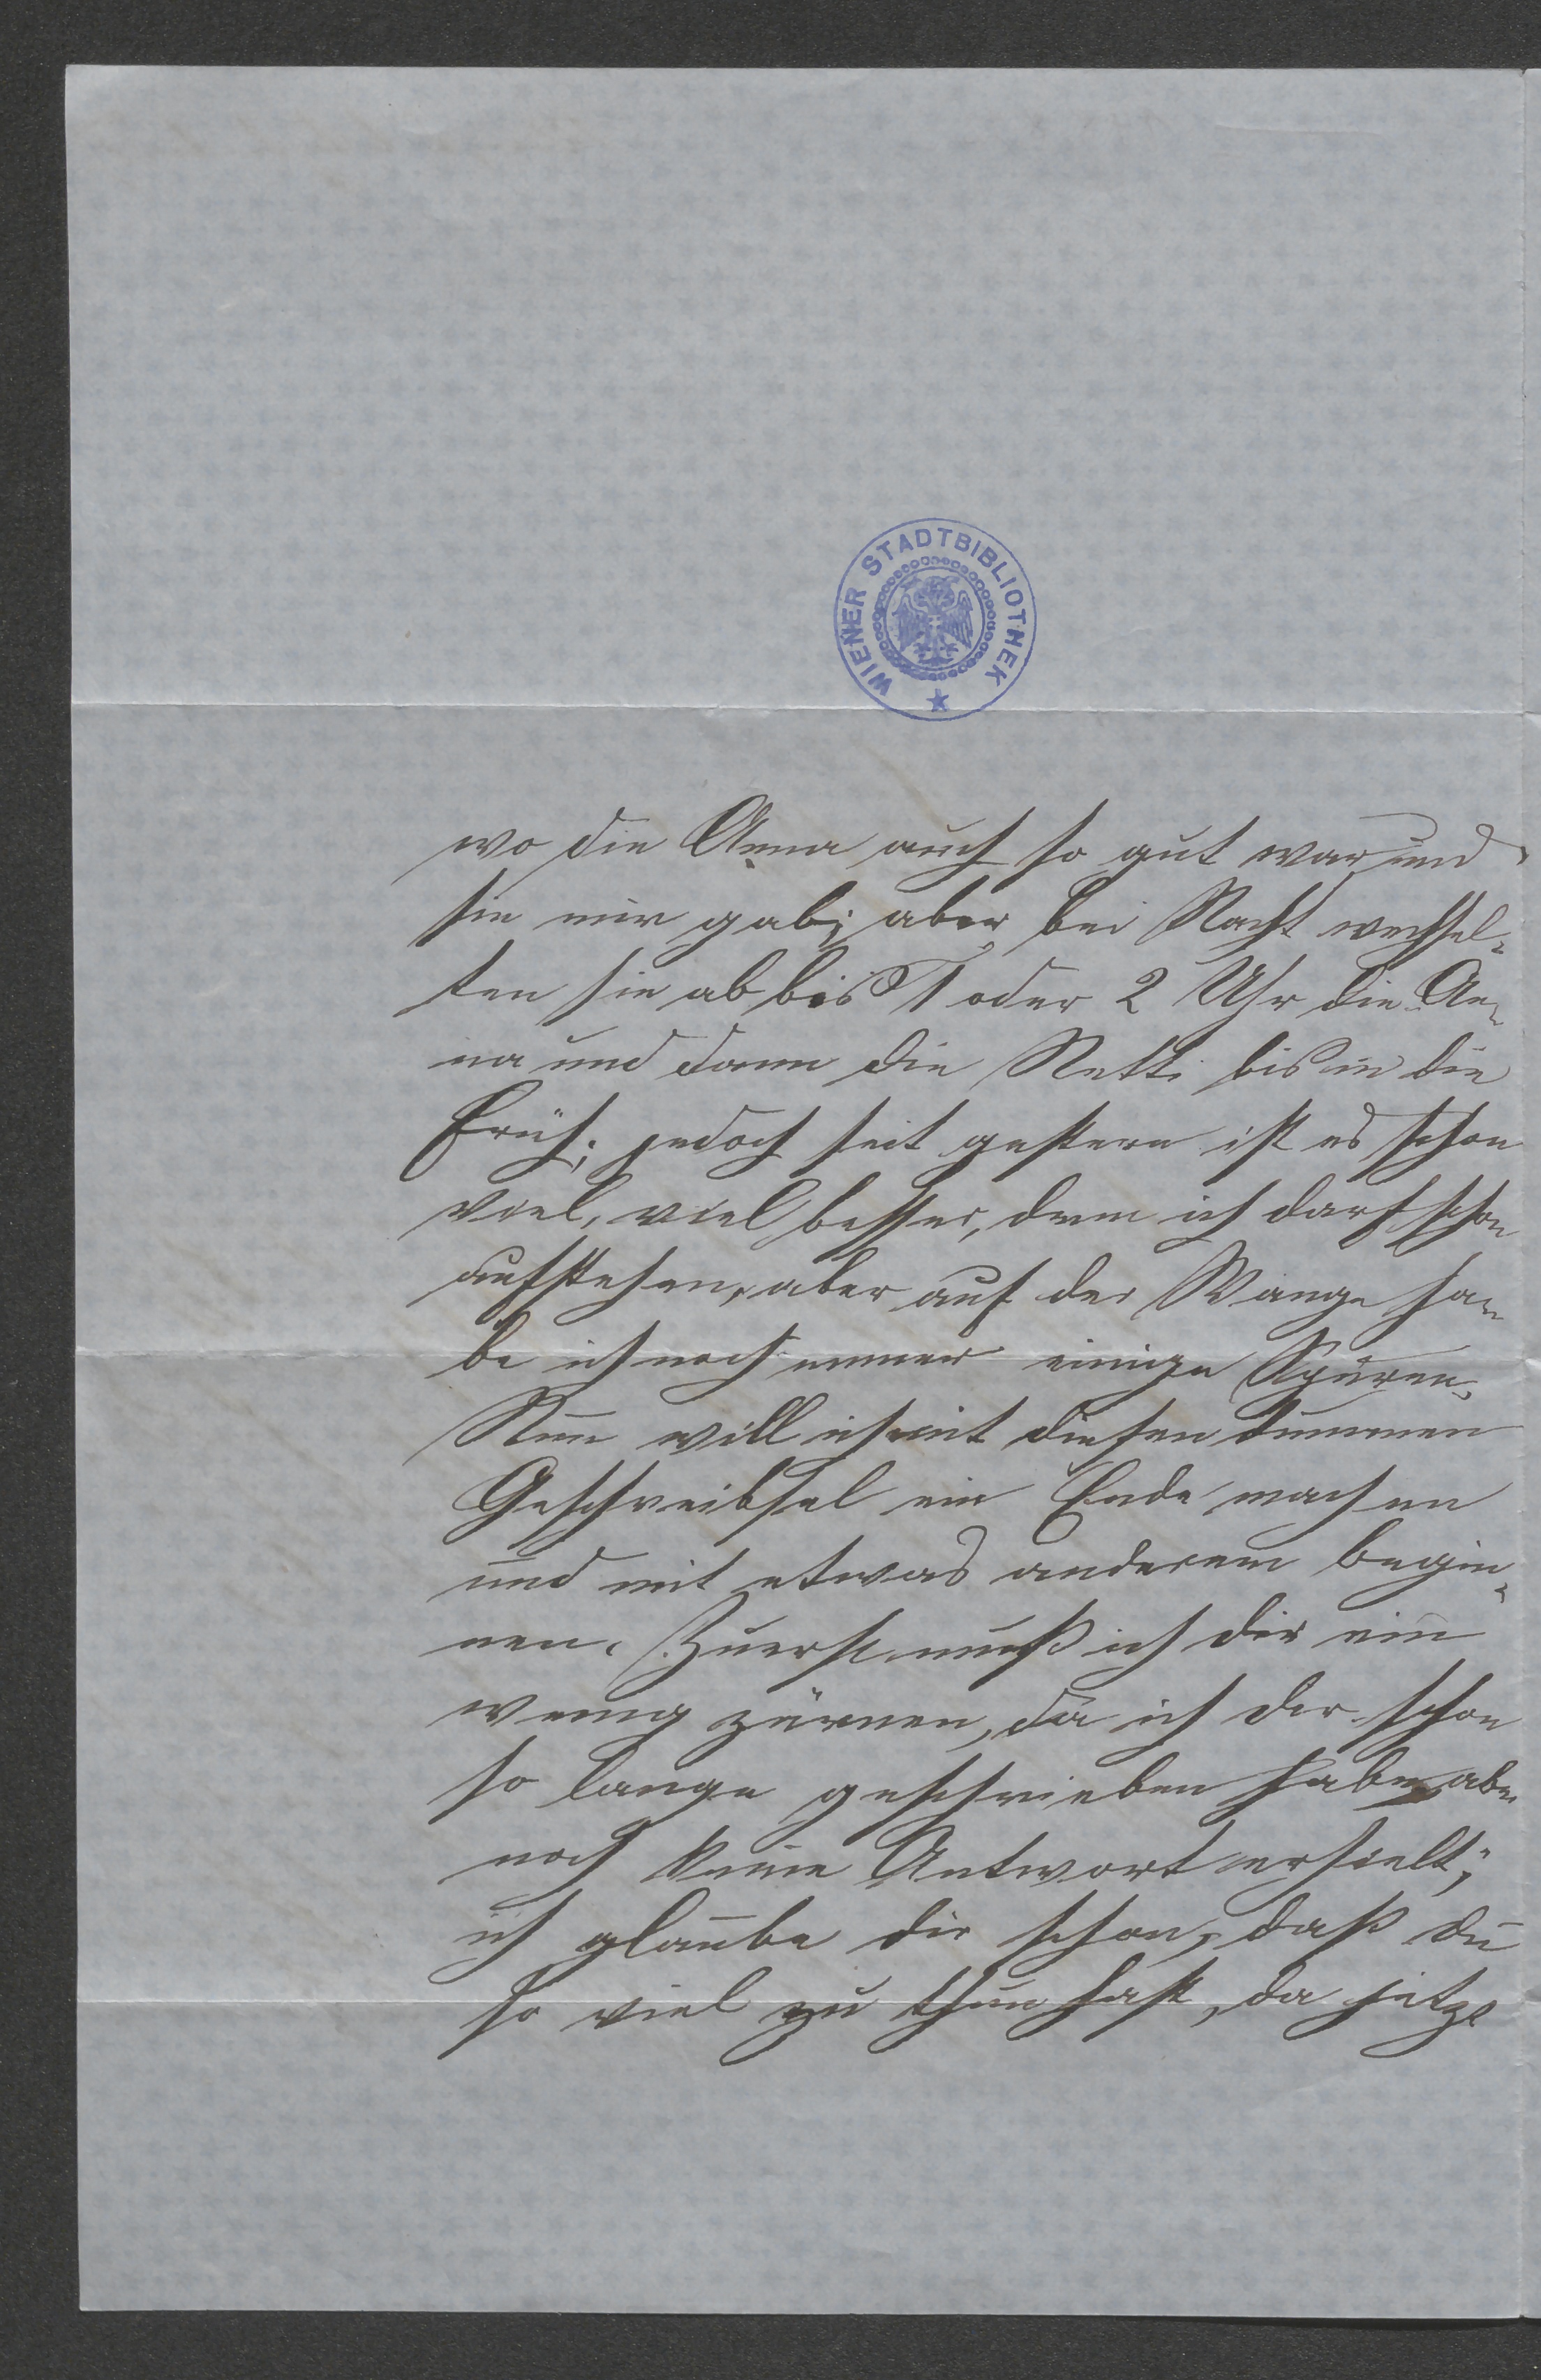 WIENER STADTBIBLIOTHEK
wo die Anna auch so gut war und
sie mir gab; aber bei Nacht wechsel-
ten sie ab bis 1 oder 2 Uhr die An-
na und dann die Netti bis in die
Früh; jedoch seit gestern ist es schon
viel, viel besser, denn ich darf schon
aufstehen, aber auf der Wange ha-
be ich noch immer einige Spuren.
Nun will ich mit diesen dummen
Geschreibsel ein Ende machen
und mit etwas anderem begin-
nen. Zuerst muß ich dir ein
wenig zürnen, da ich dir schon
so lange geschrieben habe, aber
noch keine Antwort erhielt;
ich glaube dir schon, daß du
so viel zu thun hast, da jetzt